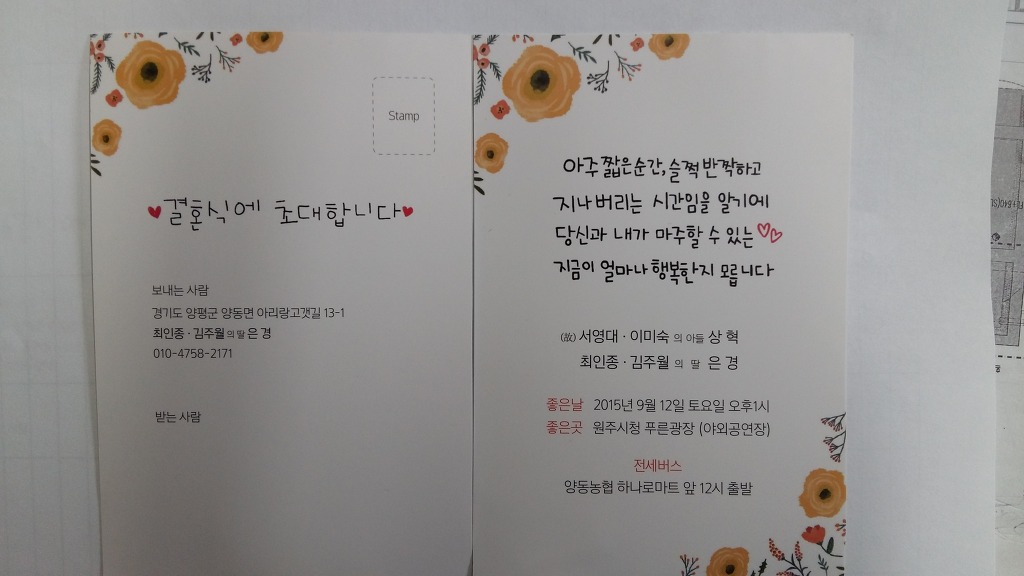 Stamp
결혼식에 초대합니다
보내는 사람
경기도 양평군 양동면 아리랑고갯길 13-1
최인종 · 김주월 의 딸 은 경
010-4758-2171
받는 사람
아주 짧은순간, 슬쩍 반짝하고
지나 버리는 시간임을 알기에
당신과 내가 마주할 수 있는
지금이 얼마나 행복한지 모릅니다
(故) 서영대 · 이미숙 의 아들 상 혁
최인종 · 김주월 의 딸 은 경
좋은날 2015년 9월 12일 토요일 오후1시
좋은곳 원주시청 푸른광장 (야외공연장)
전세버스
양동농협 하나로마트 앞 12시 출발